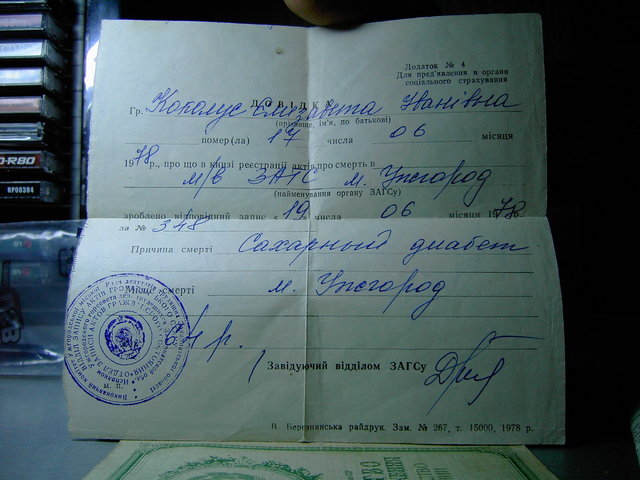 Додаток № 4
Для пред'явлення в органи
соціального страхування
ДОВІДКА
Гр. Єлизавета Іванівна
(прізвище, ім'я, по батькові)
номер(ла) 17 числа 06 місяця
1978 р., про що в книзі реєстрації актів про смерть в
м/в ЗАГС м. Ужгород
(найменування органу ЗАГСу)
зроблено відповідний запис «19 числа 06 місяця 1978 р.
за № 348
Причина смерті Сахарный диабет
Місце смерті м. Ужгород
64 р.
М. П.
Завідуючий відділом ЗАГСу
В. Березнянська райдрук. Зам. № 267, т. 15000, 1978 р.
D-R80
RP00384